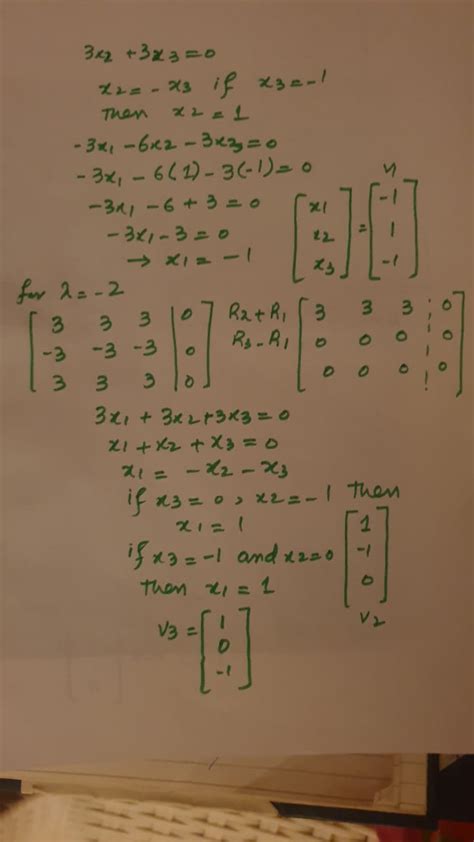 3x2 + 3x3 = 0
x2 = - x3 if x3 = -1
Then x2 = 1
-3x1 - 6x2 - 3x3 = 0
-3x1 - 6(1) - 3(-1) = 0
-3x1 - 6 + 3 = 0
-3x1 - 3 = 0
→ x1 = -1
[x1 x2 x3] = [-1 1 -1]
v1
for λ = -2
[3 3 3 | 0
-3 -3 -3 | 0
3 3 3 | 0]
R2 + R1
R3 - R1
[3 3 3 ¦ 0
0 0 0 ¦ 0
0 0 0 ¦ 0]
3x1 + 3x2 + 3x3 = 0
x1 + x2 + x3 = 0
x1 = -x2 - x3
if x3 = 0, x2 = -1 Then
x1 = 1
[1 -1 0]
v2
if x3 = -1 and x2 = 0
Then x1 = 1
v3 = [1 0 -1]